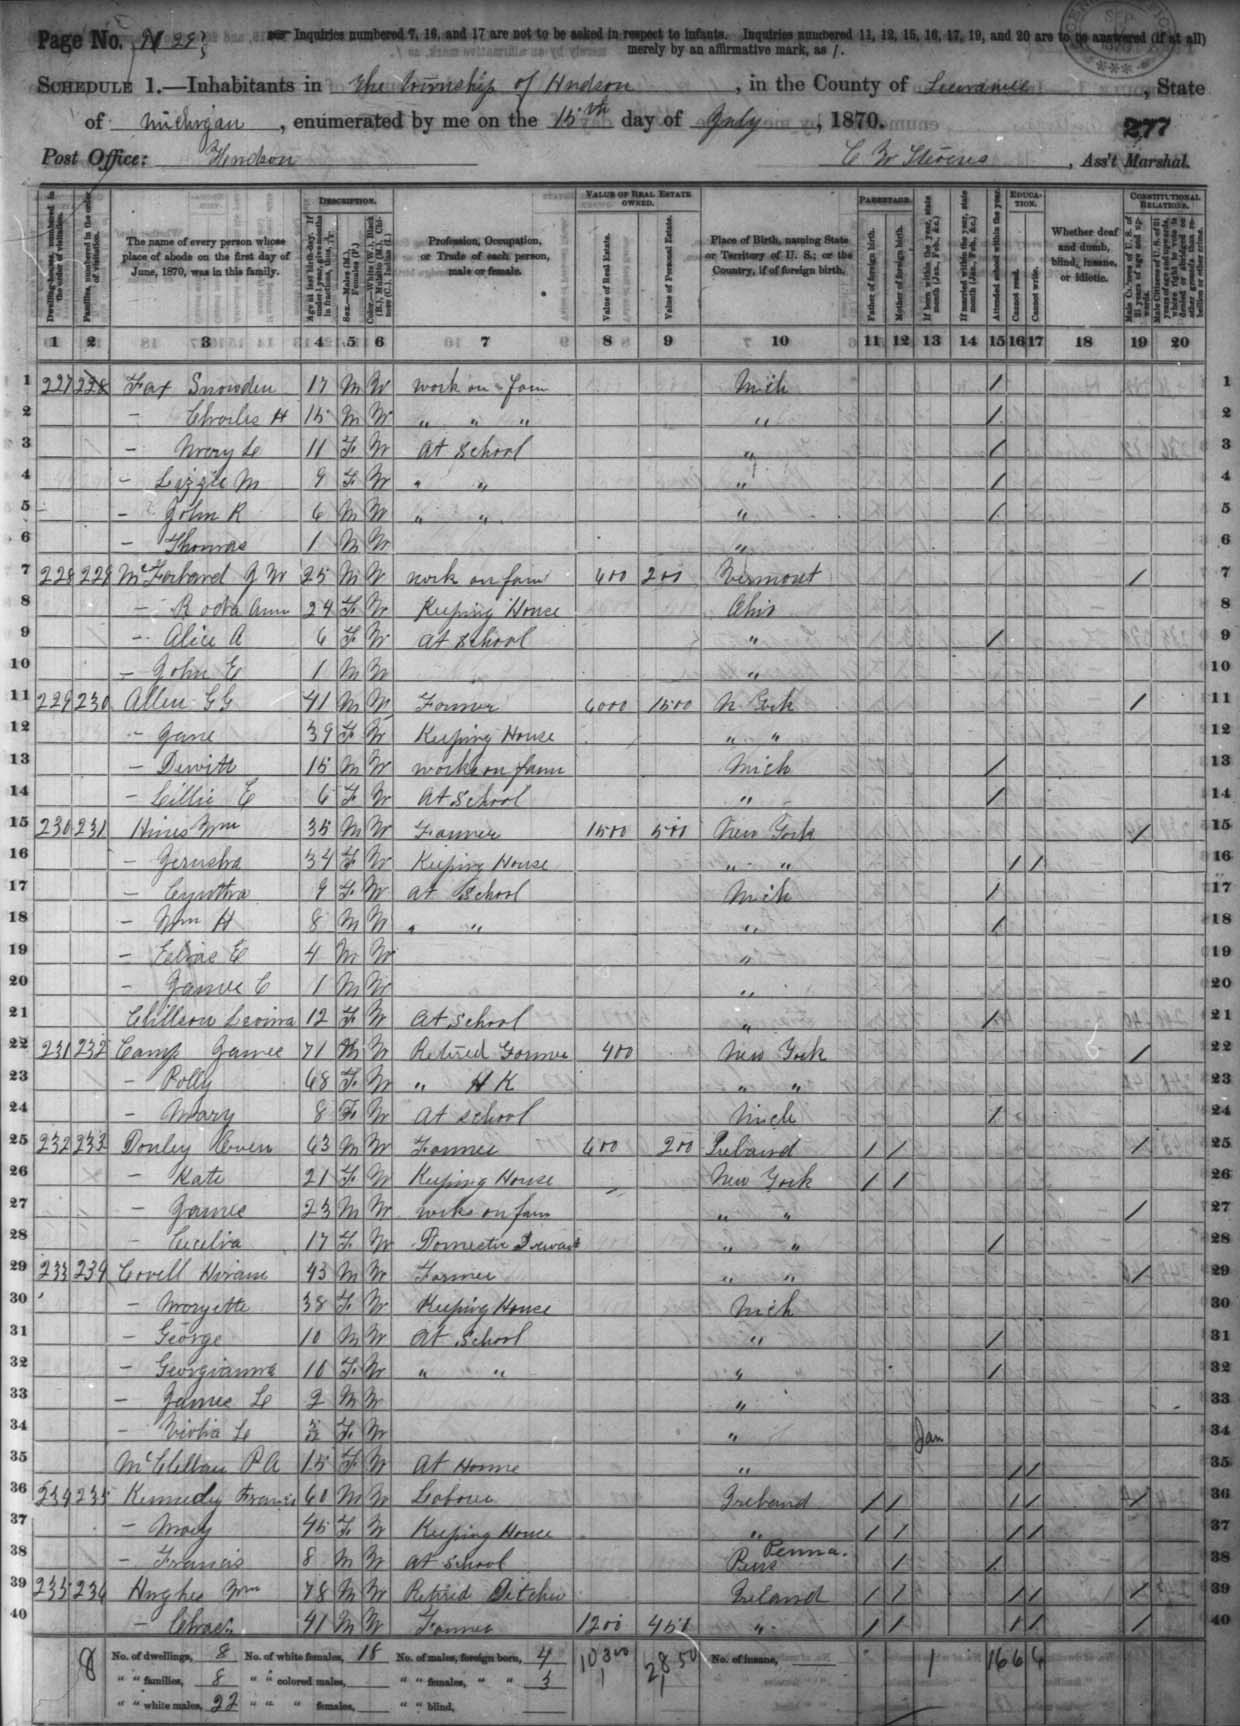 Page No. 29
Inquiries numbered 7, 16, and 17 are not to be asked in respect to infants. Inquiries numbered 11, 12, 15, 16, 17, 19, and 20 are to be answered (if at all)
merely by an affirmative mark, as /.
SCHEDULE 1.—Inhabitants in The Township of Hudson, in the County of Lenawee, State
of Michigan, enumerated by me on the 15th day of July, 1870.
277
Post Office: Hudson C W Stevens, Ass't Marshal.
DESCRIPTION. VALUE OF REAL ESTATE OWNED. PARENTAGE. EDUCATION. CONSTITUTIONAL RELATIONS.
Dwelling-houses, numbered in the order of visitation. Families, numbered in the order of visitation. The name of every person whose place of abode on the first day of June, 1870, was in this family. Age at last birth-day. If under 1 year, give months in fractions, thus, 3/12. Sex.—Males (M.), Females (F.) Color.—White (W.), Black (B.), Mulatto (M.), Chinese (C.), Indian (I.) Profession, Occupation, or Trade of each person, male or female. Value of Real Estate. Value of Personal Estate. Place of Birth, naming State or Territory of U. S.; or the Country, if of foreign birth. Father of foreign birth. Mother of foreign birth. If born within the year, state month (Jan., Feb., &c.) If married within the year, state month (Jan., Feb., &c.) Attended school within the year. Cannot read. Cannot write. Whether deaf and dumb, blind, insane, or idiotic. Male Citizens of U. S. of 21 years of age and upwards. Male Citizens of U. S. of 21 years of age and upwards, whose right to vote is denied or abridged on other grounds than rebellion or other crime.
1 2 3 4 5 6 7 8 9 10 11 12 13 14 15 16 17 18 19 20
1 227 228 Fax Snowden 17 M W work on farm Mich / 1
2 — Charles H 15 M W " " " " / 2
3 — Mary L 11 F W At School " / 3
4 — Lizzie M 9 F W " " " / 4
5 — John R 6 M W " " " / 5
6 — Thomas 1 M W " 6
7 228 228 McFarland J W 25 M W work on farm 600 200 Vermont / 7
8 — Roda Ann 24 F W Keeping House Ohio 8
9 — Alice A 6 F W At School " / 9
10 — John E 1 M W " 10
11 229 230 Allen G G 41 M W Farmer 6000 1500 N York / 11
12 — Jane 39 F W Keeping House " " 12
13 — Dewitt 15 M W works on farm Mich / 13
14 — Lillie E 6 F W At School " / 14
15 230 231 Hines Wm 35 M W Farmer 1500 500 New York / 15
16 — Jerusha 34 F W Keeping House " " / / 16
17 — Cynthia 9 F W At School Mich / 17
18 — Wm H 8 M W " " " / 18
19 — Elias E 4 M W " 19
20 — James C 1 M W " 20
21 Chillson Levina 12 F W At School " / 21
22 231 232 Camp James 71 M W Retired Farmer 400 New York / 22
23 — Polly 68 F W " H K " " 23
24 — Mary 8 F W At School Mich / 24
25 232 233 Donley Owen 63 M W Farmer 600 200 Ireland / / / 25
26 — Kate 21 F W Keeping House New York / / 26
27 — James 23 M W works on farm " " / 27
28 — Cecelia 17 F W Domestic Servant " " / 28
29 233 234 Covell Hiram 43 M W Farmer " " / 29
30 — Maryette 38 F W Keeping House Mich 30
31 — George 10 M W At School " / 31
32 — Georgianna 10 F W " " " / 32
33 — James L 2 M W " 33
34 — Viola L F W " Jan 34
35 McClellan P A 15 F W At Home " / / 35
36 234 235 Kennedy Francis 60 M W Laborer Ireland / / / / / 36
37 — Mary 45 F W Keeping House " / / / / 37
38 — Francis 8 M W At School Penna. / / 38
39 235 236 Hughes Wm 78 M W Retired Ditcher Ireland / / / / / 39
40 — Chas 41 M W Farmer 1200 450 " / / / / / 40
8 No. of dwellings, 8 No. of white females, 18 No. of males, foreign born, 4 10300 2850 No. of insane, 1 16 6 6
" " families, 8 " " colored males, " " females, " " 3
" " white males, 22 " " " females, " " blind,